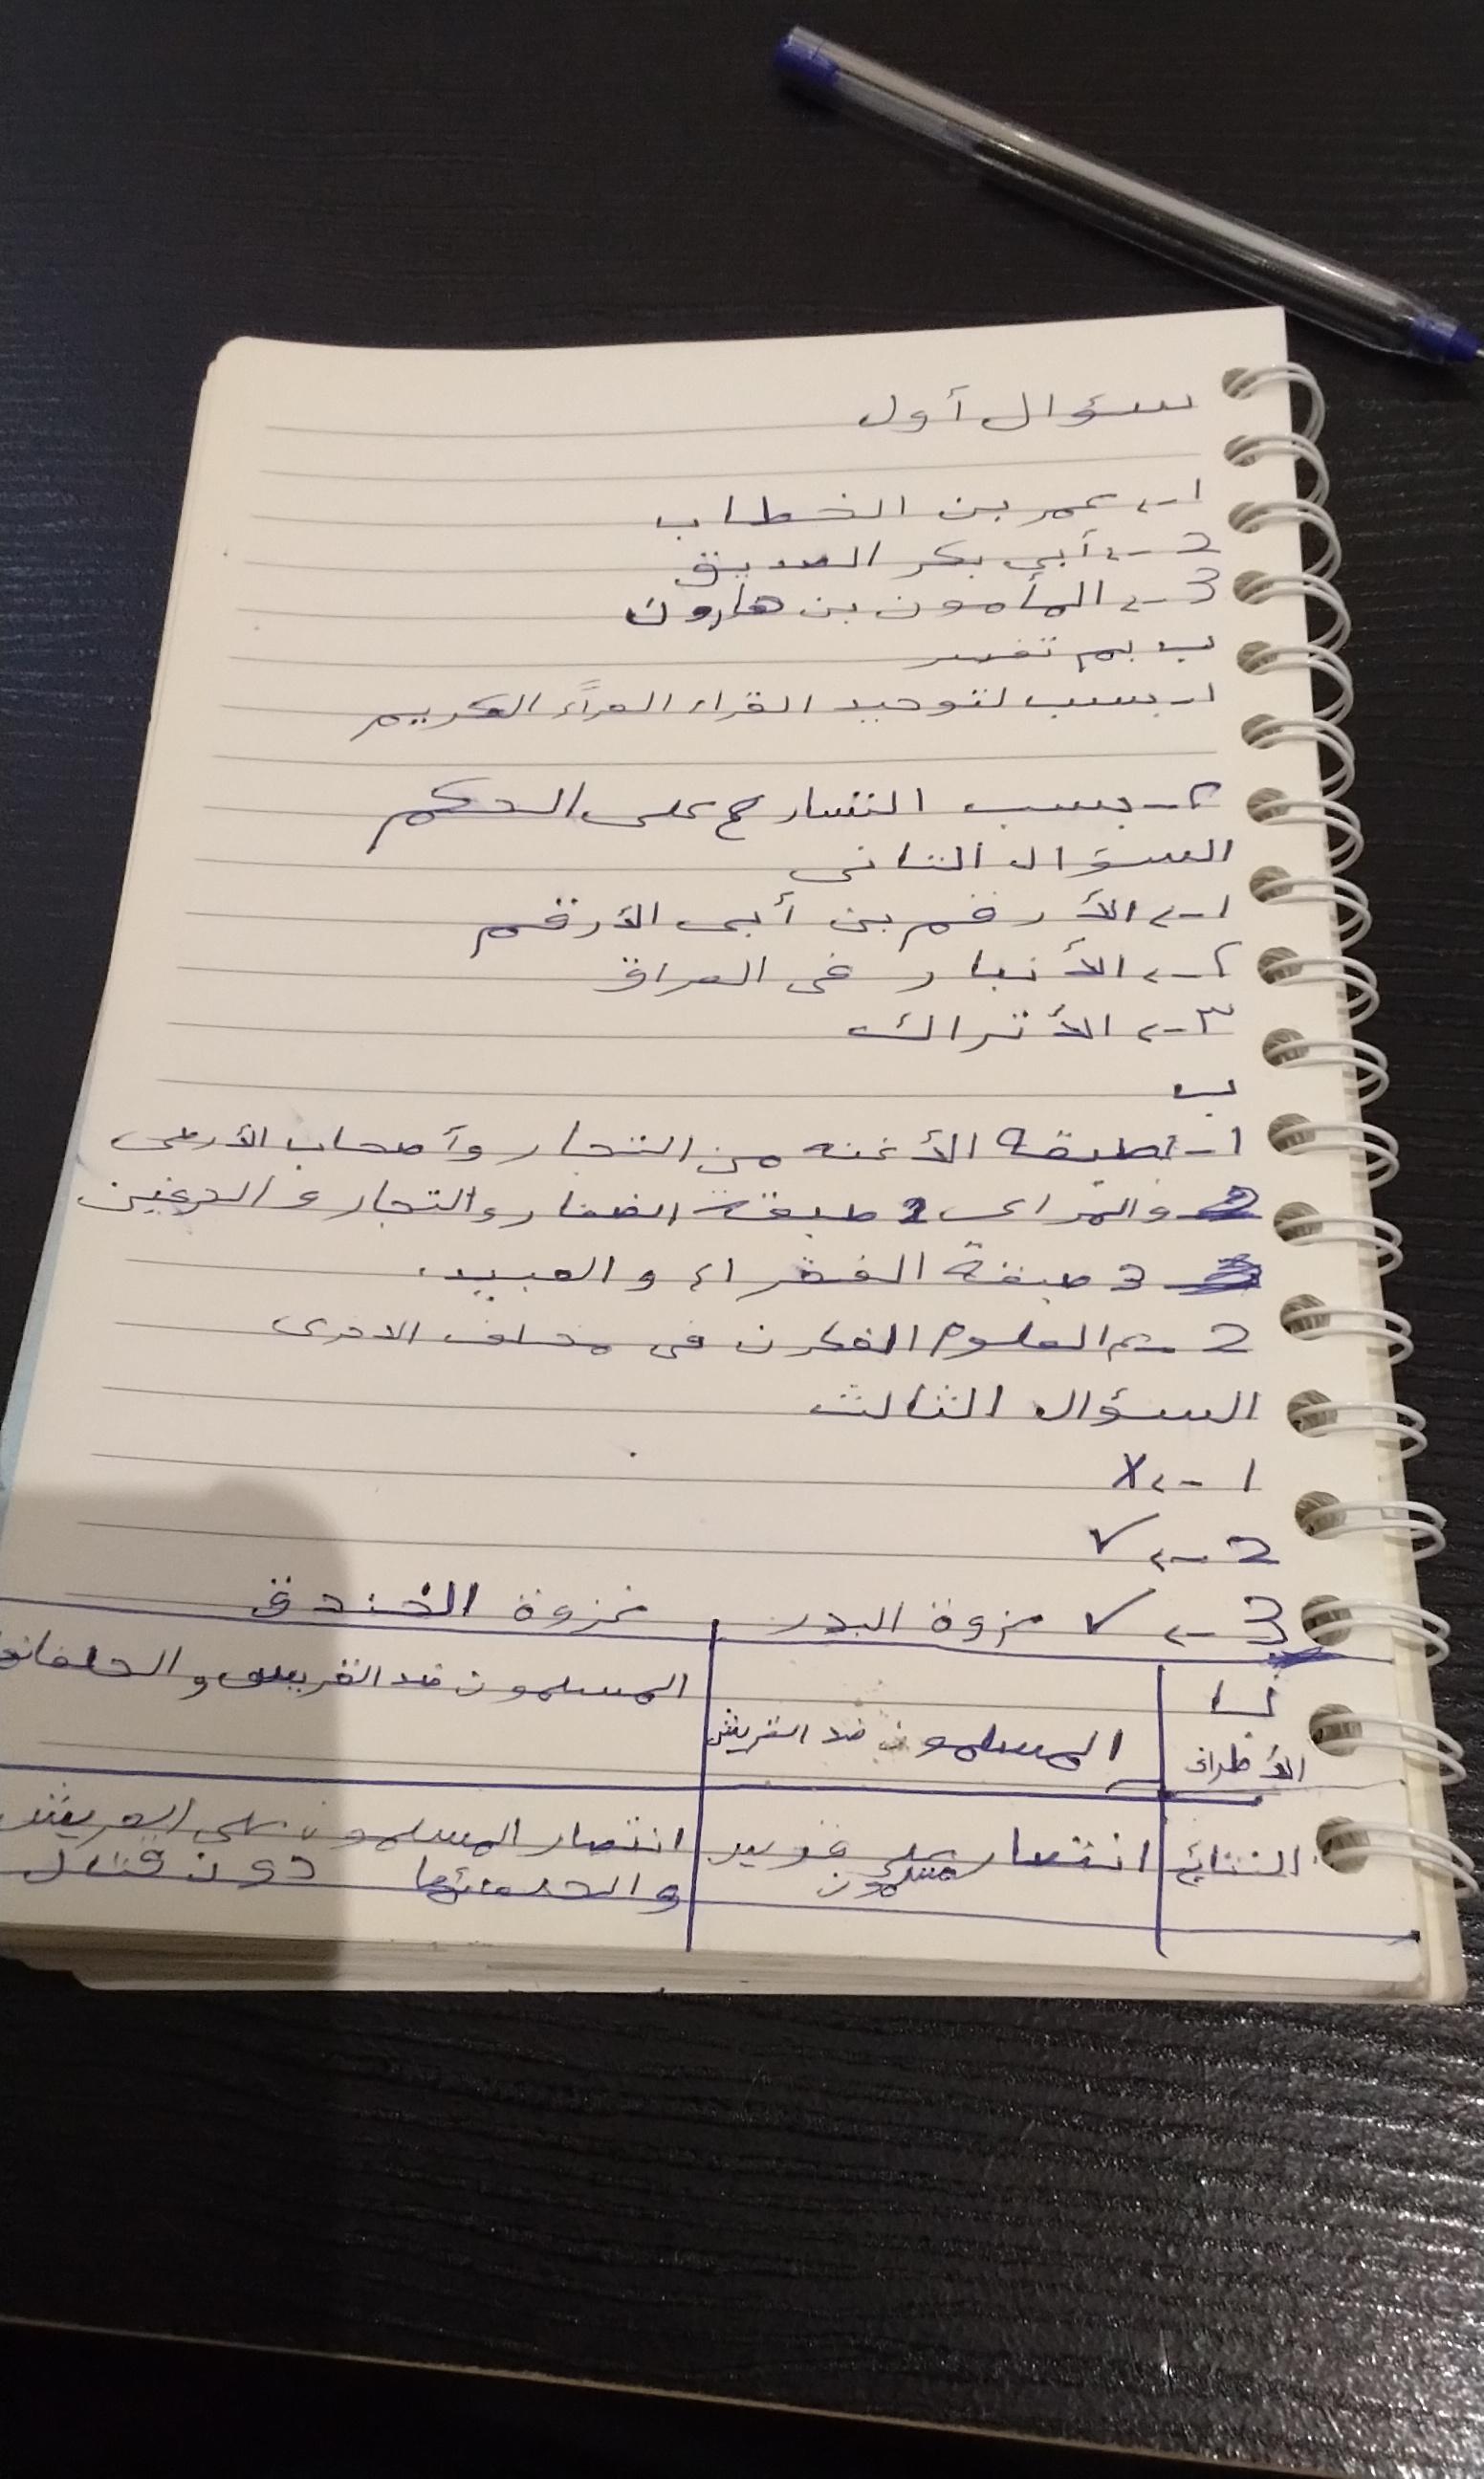 سؤال أول
1 -> عمر بن الخطاب
2 -> أبي بكر الصديق
3 -> المأمون بن هارون
ب بم تفسر
1- بسبب لتوحيد القراء القرآء الكريم
٢- بسبب التسارع على الحكم
السؤال الثاني
1 -> الأرقم بن أبي الأرقم
٢ -> الأنبار في العراق
٣ -> الأتراك
ب
1- طبقة الأغنه من التجار وأصحاب الأرضى
والمراى 2 طبقة الصغار والتجار و الحرفين
3 طبقة الفقراء و العبيد.
2 - العلوم الفكرن فى مختلف الاخرى
السؤال الثالث
1 -> X
2 -> ✓
3 -> ✓ غزوة البدر غزوة الخندق
ب
الأطراف المسلمون ضد القريش المسلمون ضد القريش والحلفائها
النتائج انتصار مسلمون على انتصار المسلمون على القريش
والحلفائها دون قتال